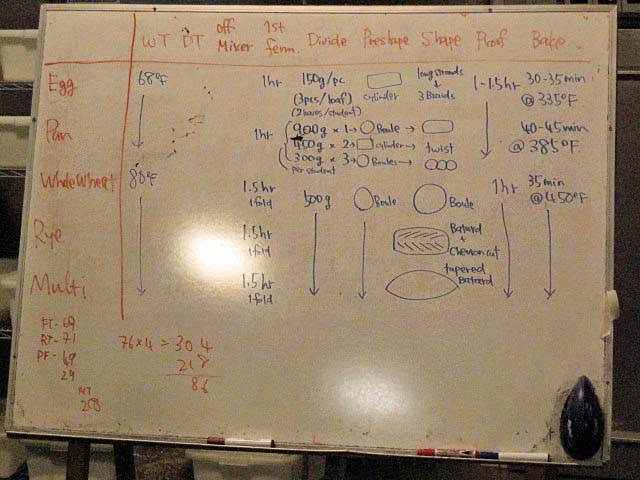 WT DT off Mixer 1st ferm. Divide Preshape Shape Proof Bake
Egg 68°F 1hr 150g/pc cylinder long strands + 3 Braids 1-1.5hr 30-35min @335°F
(3pcs/loaf)
(2 loaves/student)
Pan 1hr 900g × 1 → Boule → 40-45min @385°F
450g × 2 → cylinder → twist
300g × 3 → Boules →
per student
Whole Wheat 1.5hr 1 fold 500g Boule Boule 1hr 35min @450°F
Rye 1.5hr 1 fold Batard + Chevron cut
Multi 1.5hr 1 fold tapered Batard
FT-69
RT-71
PF-69
29
76×4 = 304
218
86